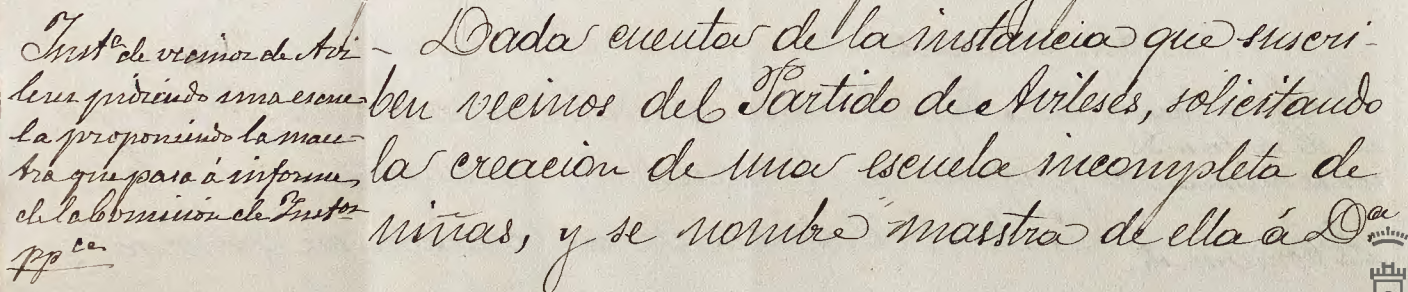 Inst.ª de vecinos de Avi
leses pidiendo una escue
la proponiendo la maes
tra que pasa á informe
de la Comision de Inst.on
pp.ca
- Dada cuenta de la instancia que suscri-
ben vecinos del Partido de Avileses, solicitando
la creacion de una escuela incompleta de
niñas, y se nombre maestra de ella á D.ª